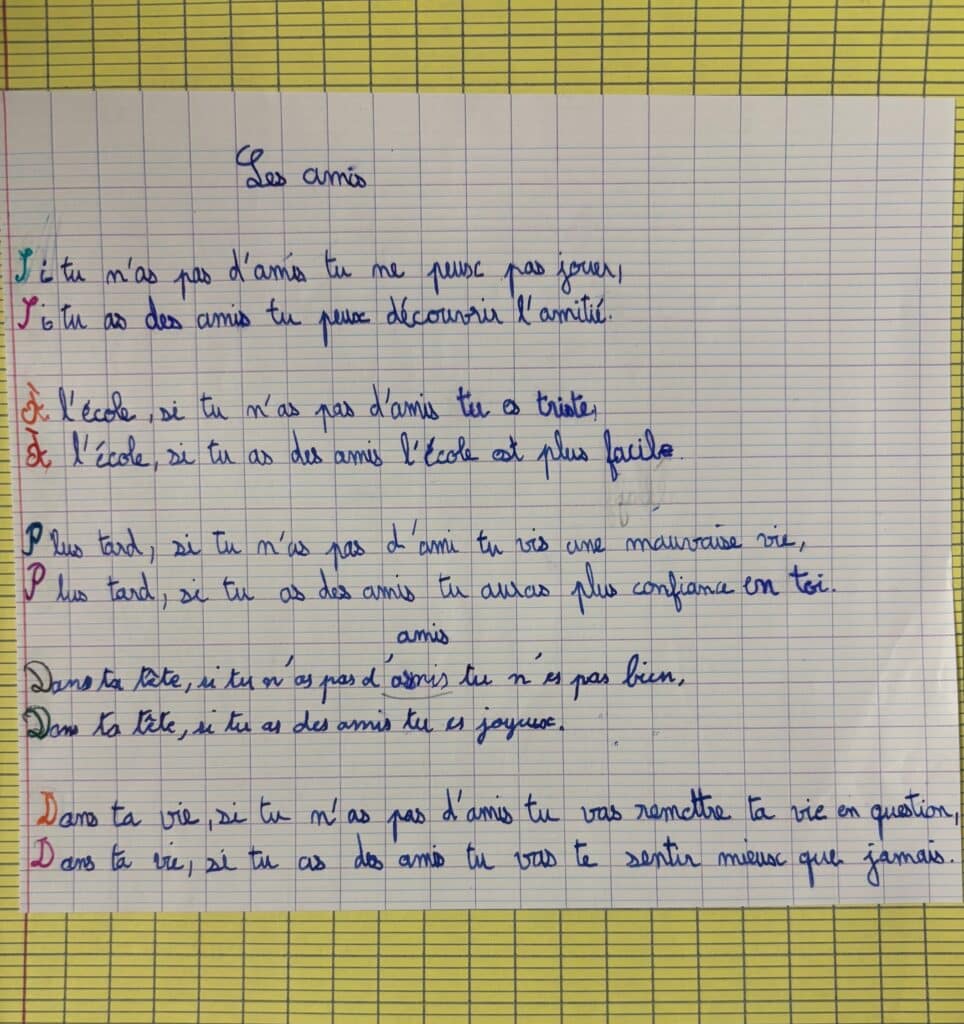 Les amis
Si tu n'as pas d'amis tu ne peux pas jouer,
Si tu as des amis tu peux découvrir l'amitié.
À l'école, si tu n'as pas d'amis tu es triste,
À l'école, si tu as des amis l'école est plus facile.
Plus tard, si tu n'as pas d'ami tu vis une mauvaise vie,
Plus tard, si tu as des amis tu auras plus confiance en toi.
amis
Dans ta tête, si tu n'as pas d'amis tu n'es pas bien,
Dans ta tête, si tu as des amis tu es joyeux.
Dans ta vie, si tu n'as pas d'amis tu vas remettre ta vie en question,
Dans ta vie, si tu as des amis tu vas te sentir mieux que jamais.